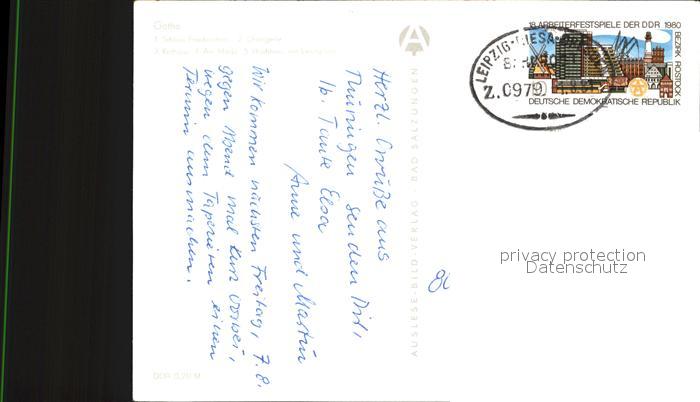 Gotha
1. Schloss Friedenstein 2. Orangerie
3. Rathaus 4. Am Markt 5.
Herzl. Grüße aus
Thüringen senden Dir,
lb. Tante Elsa
Anne und Martin
Wir kommen nächsten Freitag, 7.8.
gegen Abend mal kurz vorbei,
wegen dem Tapezieren einen
Termin ausmachen.
DDR 0,20 M
AUSLESE-BILD-VERLAG · BAD SALZUNGEN
18. ARBEITERFESTSPIELE DER DDR 1980
BEZIRK ROSTOCK
DEUTSCHE DEMOKRATISCHE REPUBLIK
LEIPZIG-RIESA
Z. 0979
privacy protection
Datenschutz